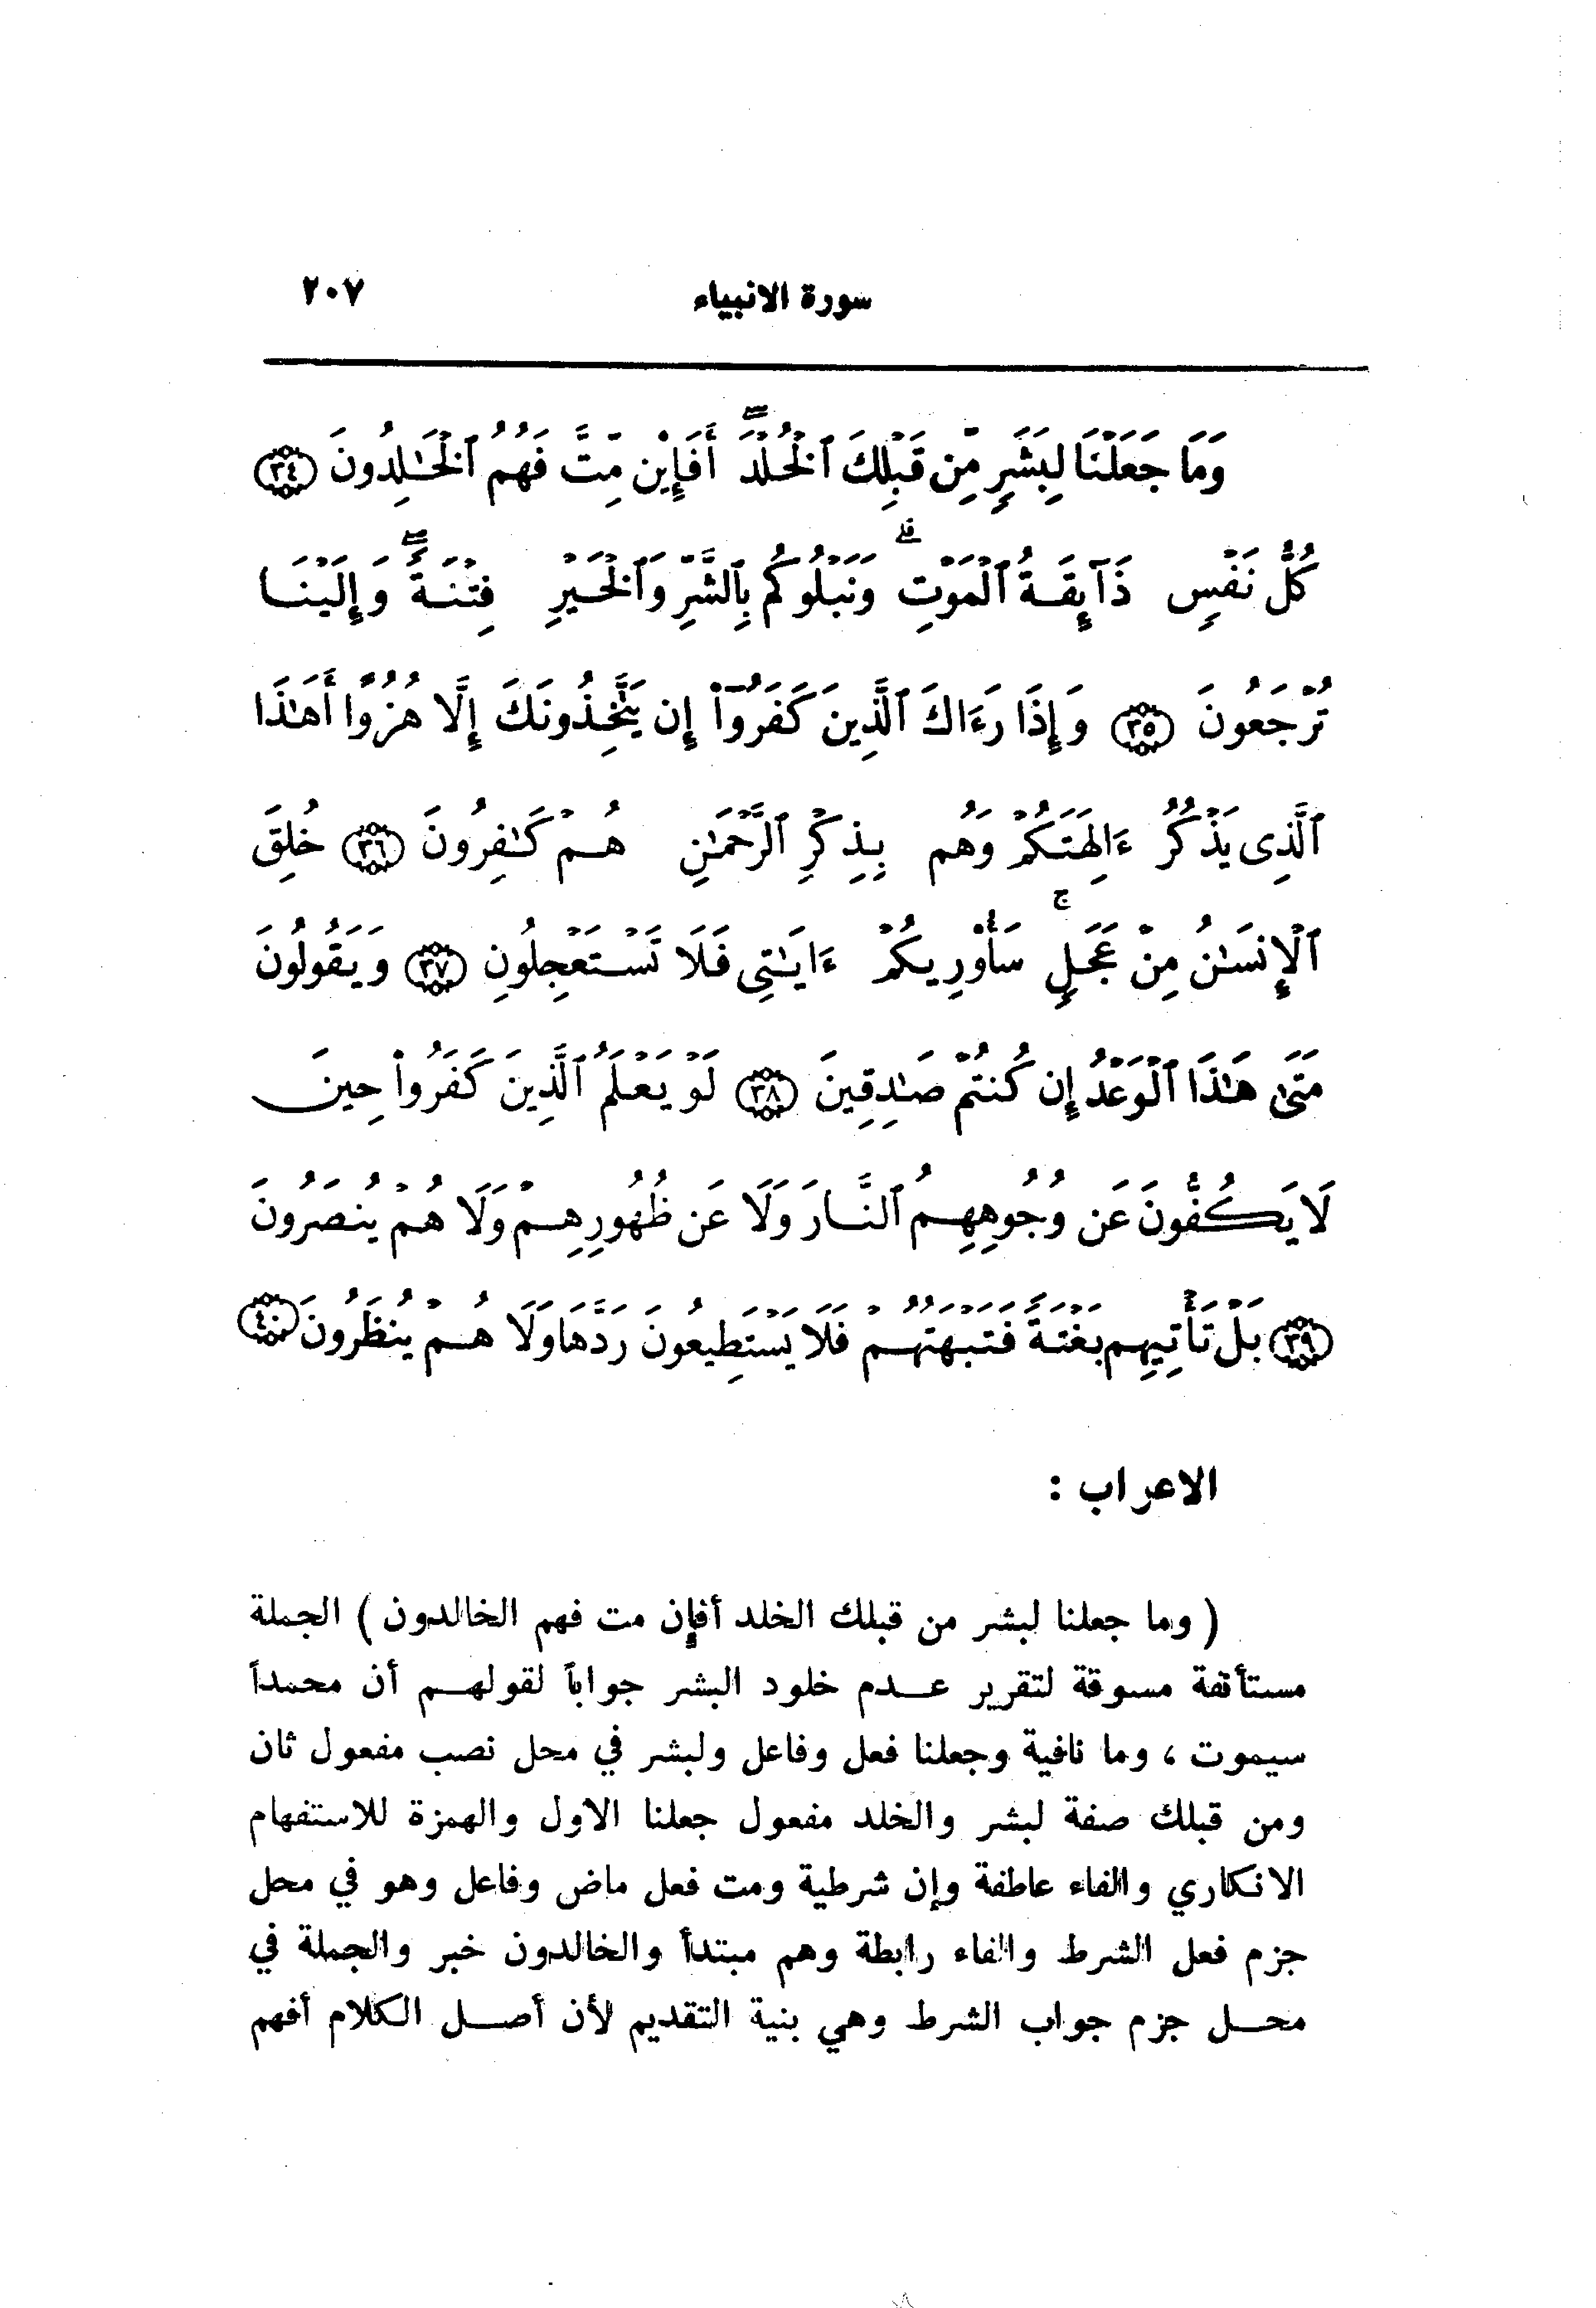 سورة الانبياء ٢٠٧
وَمَا جَعَلْنَا لِبَشَرٍ مِّن قَبْلِكَ ٱلْخُلْدَۖ أَفَإِيْن مِّتَّ فَهُمُ ٱلْخَٰلِدُونَ ﴿٣٤﴾
كُلُّ نَفْسٍ ذَآئِقَةُ ٱلْمَوْتِۗ وَنَبْلُوكُم بِٱلشَّرِّ وَٱلْخَيْرِ فِتْنَةًۖ وَإِلَيْنَا
تُرْجَعُونَ ﴿٣٥﴾ وَإِذَا رَءَاكَ ٱلَّذِينَ كَفَرُوٓا۟ إِن يَتَّخِذُونَكَ إِلَّا هُزُوًا أَهَٰذَا
ٱلَّذِى يَذْكُرُ ءَالِهَتَكُمْ وَهُم بِذِكْرِ ٱلرَّحْمَٰنِ هُمْ كَٰفِرُونَ ﴿٣٦﴾ خُلِقَ
ٱلْإِنسَٰنُ مِنْ عَجَلٍۚ سَأُو۟رِيكُمْ ءَايَٰتِى فَلَا تَسْتَعْجِلُونِ ﴿٣٧﴾ وَيَقُولُونَ
مَتَىٰ هَٰذَا ٱلْوَعْدُ إِن كُنتُمْ صَٰدِقِينَ ﴿٣٨﴾ لَوْ يَعْلَمُ ٱلَّذِينَ كَفَرُوا۟ حِينَ
لَا يَكُفُّونَ عَن وُجُوهِهِمُ ٱلنَّارَ وَلَا عَن ظُهُورِهِمْ وَلَا هُمْ يُنصَرُونَ
﴿٣٩﴾ بَلْ تَأْتِيهِم بَغْتَةً فَتَبْهَتُهُمْ فَلَا يَسْتَطِيعُونَ رَدَّهَا وَلَا هُمْ يُنظَرُونَ ﴿٤٠﴾
الاعراب :
( وما جعلنا لبشر من قبلك الخلد أفإن مت فهم الخالدون ) الجملة
مستأنفة مسوقة لتقرير عدم خلود البشر جواباً لقولهم أن محمداً
سيموت ، وما نافية وجعلنا فعل وفاعل ولبشر في محل نصب مفعول ثان
ومن قبلك صفة لبشر والخلد مفعول جعلنا الاول والهمزة للاستفهام
الانكاري والفاء عاطفة وإن شرطية ومت فعل ماض وفاعل وهو في محل
جزم فعل الشرط والفاء رابطة وهم مبتدأ والخالدون خبر والجملة في
محل جزم جواب الشرط وهي بنية التقديم لأن أصل الكلام أفهم